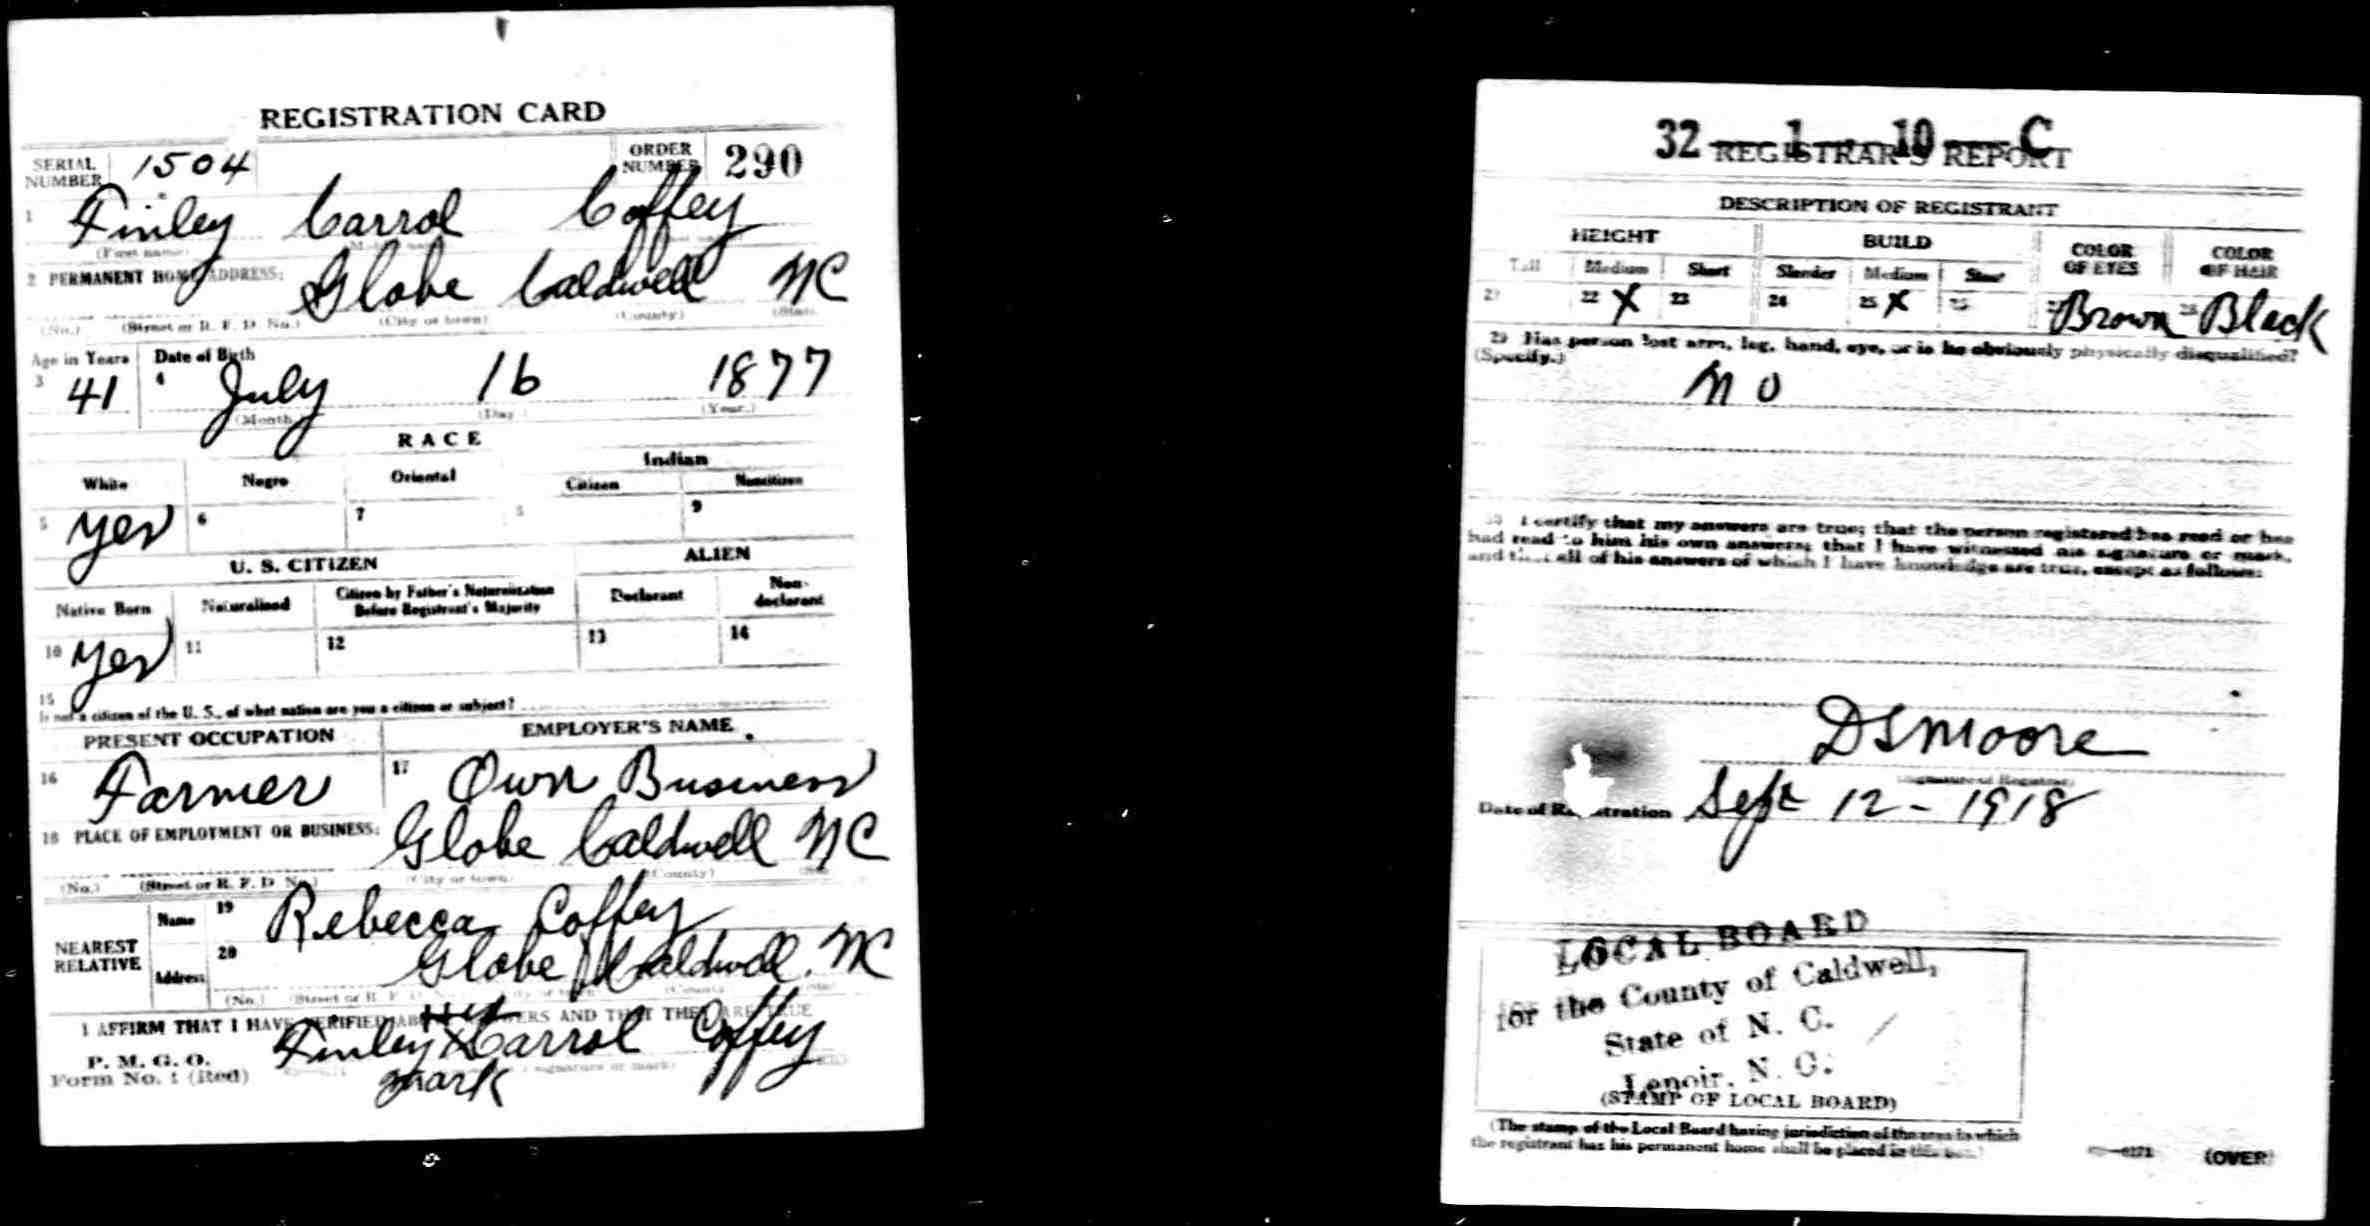 REGISTRATION CARD
SERIAL NUMBER 1504 ORDER NUMBER 290
1 Finley Carrol Coffey
(First name)
2 PERMANENT HOME ADDRESS: Globe Caldwell NC
(No.) (Street or R. F. D. No.) (City or town) (County) (State)
Age in Years Date of Birth
3 41 4 July 16 1877
(Month) (Day.) (Year.)
RACE
White Negro Oriental Indian
Citizen Noncitizen
5 Yes 6 7 9
U. S. CITIZEN ALIEN
Native Born Naturalized Citizen by Father's Naturalization Before Registrant's Majority Declarant Non-declarant
10 Yes 11 12 13 14
15 If not a citizen of the U. S., of what nation are you a citizen or subject?
PRESENT OCCUPATION EMPLOYER'S NAME
16 Farmer 17 Own Business
18 PLACE OF EMPLOYMENT OR BUSINESS: Globe Caldwell NC
(No.) (Street or R. F. D. No.) (City or town) (County)
NEAREST RELATIVE Name 19 Rebecca Coffey
Address 20 Globe Caldwell. NC
(No.)
I AFFIRM THAT I HAVE VERIFIED ABOVE ANSWERS AND THAT THEY ARE TRUE
P. M. G. O.
Form No. 1 (Red)
his
Finley X Carrol Coffey
mark
(Signature or mark)
32 1 10 C
REGISTRAR'S REPORT
DESCRIPTION OF REGISTRANT
HEIGHT BUILD COLOR OF EYES COLOR OF HAIR
Tall Medium Short Slender Medium Stout
22 X 23 24 25 X Brown Black
29 Has person lost arm, leg, hand, eye, or is he obviously physically disqualified?
(Specify.)
No
30 I certify that my answers are true; that the person registered has read or has
had read to him his own answers; that I have witnessed his signature or mark,
and that all of his answers of which I have knowledge are true, except as follows:
DSMoore
(Signature of Registrar)
Date of Registration Sept 12 - 1918
LOCAL BOARD
for the County of Caldwell,
State of N. C.
Lenoir, N. C.
(STAMP OF LOCAL BOARD)
(The stamp of the Local Board having jurisdiction of the area in which
the registrant has his permanent home shall be placed in this box.)
(OVER)